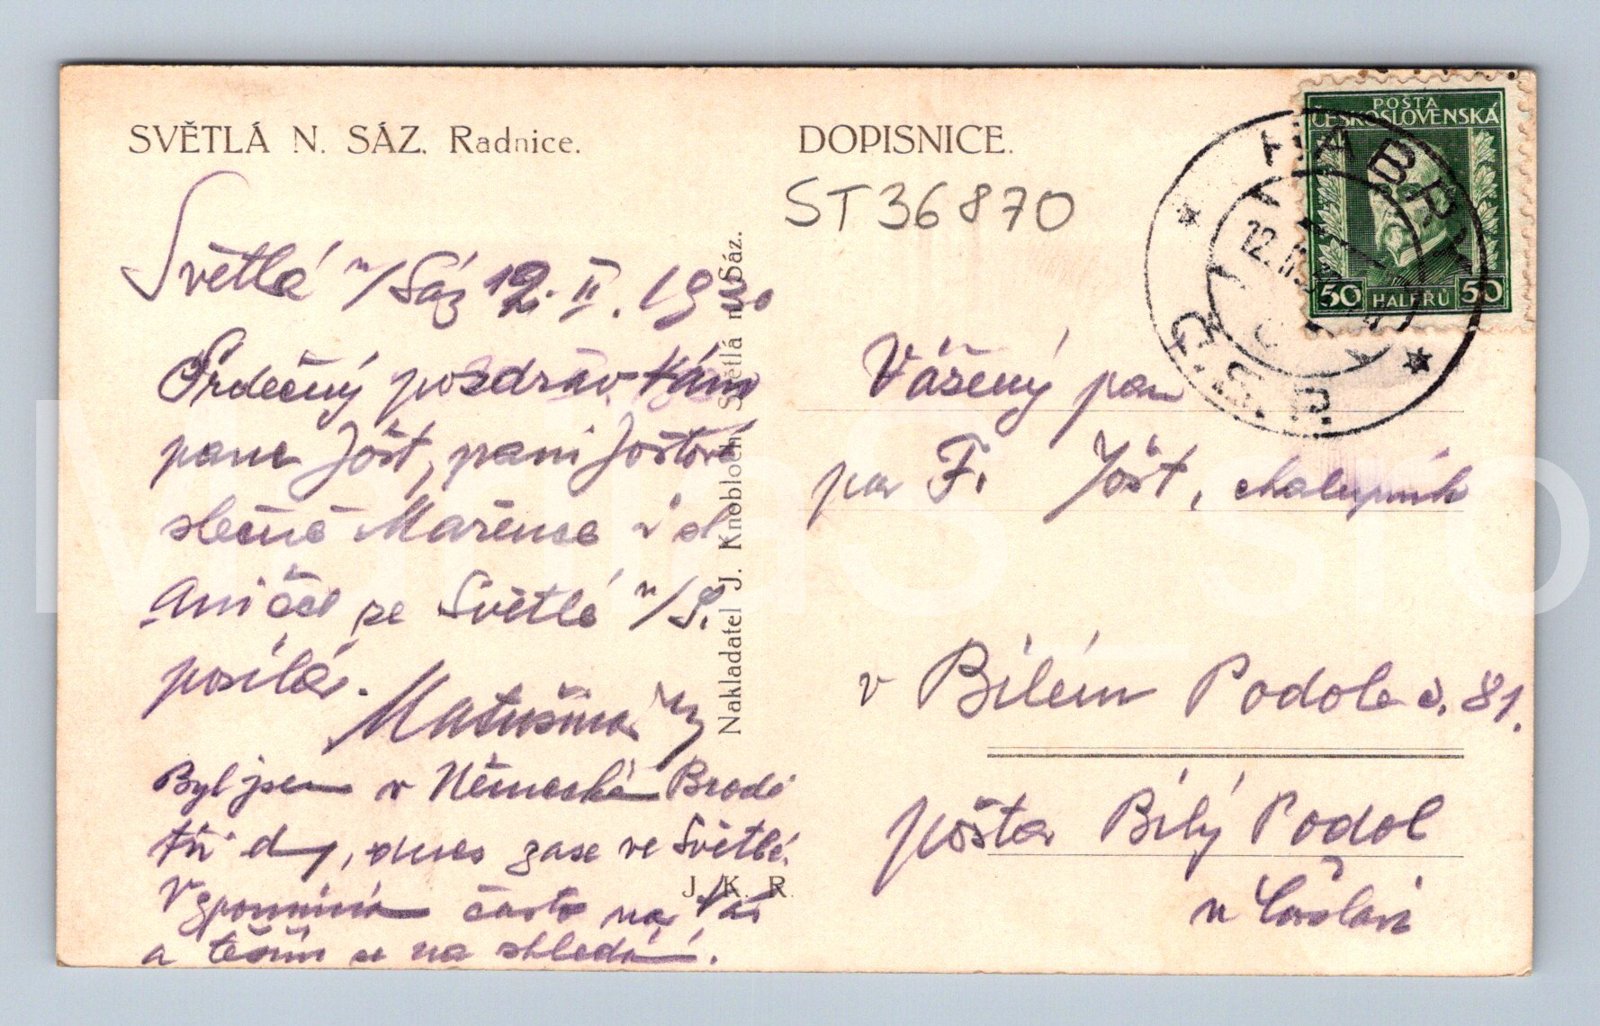 SVĚTLÁ N. SÁZ. Radnice.
DOPISNICE.
ST36870
POŠTA
ČESKOSLOVENSKÁ
50 HALÉŘŮ 50
HABRY
12.II.
Č.S.P.
Světlá n/Sáz 12. II. 1930
Srdečný pozdrav Vám
pane Jóšt, paní Joštová
slečně Mařence i sl
Aničce ze Světlé n/S.
posílá.
Byl jsem v Německém Brodě
tři dny, dnes zase ve Světlé.
Vzpomínám často na Vás
a těším se na shledání.
Nakladatel J. Knobloch Světlá n. Sáz.
J. K. R.
Vážený pan
pan F. Jóšt, chalupník
v Bílém Podole č. 81.
pošta Bílý Podol
u Čáslavi